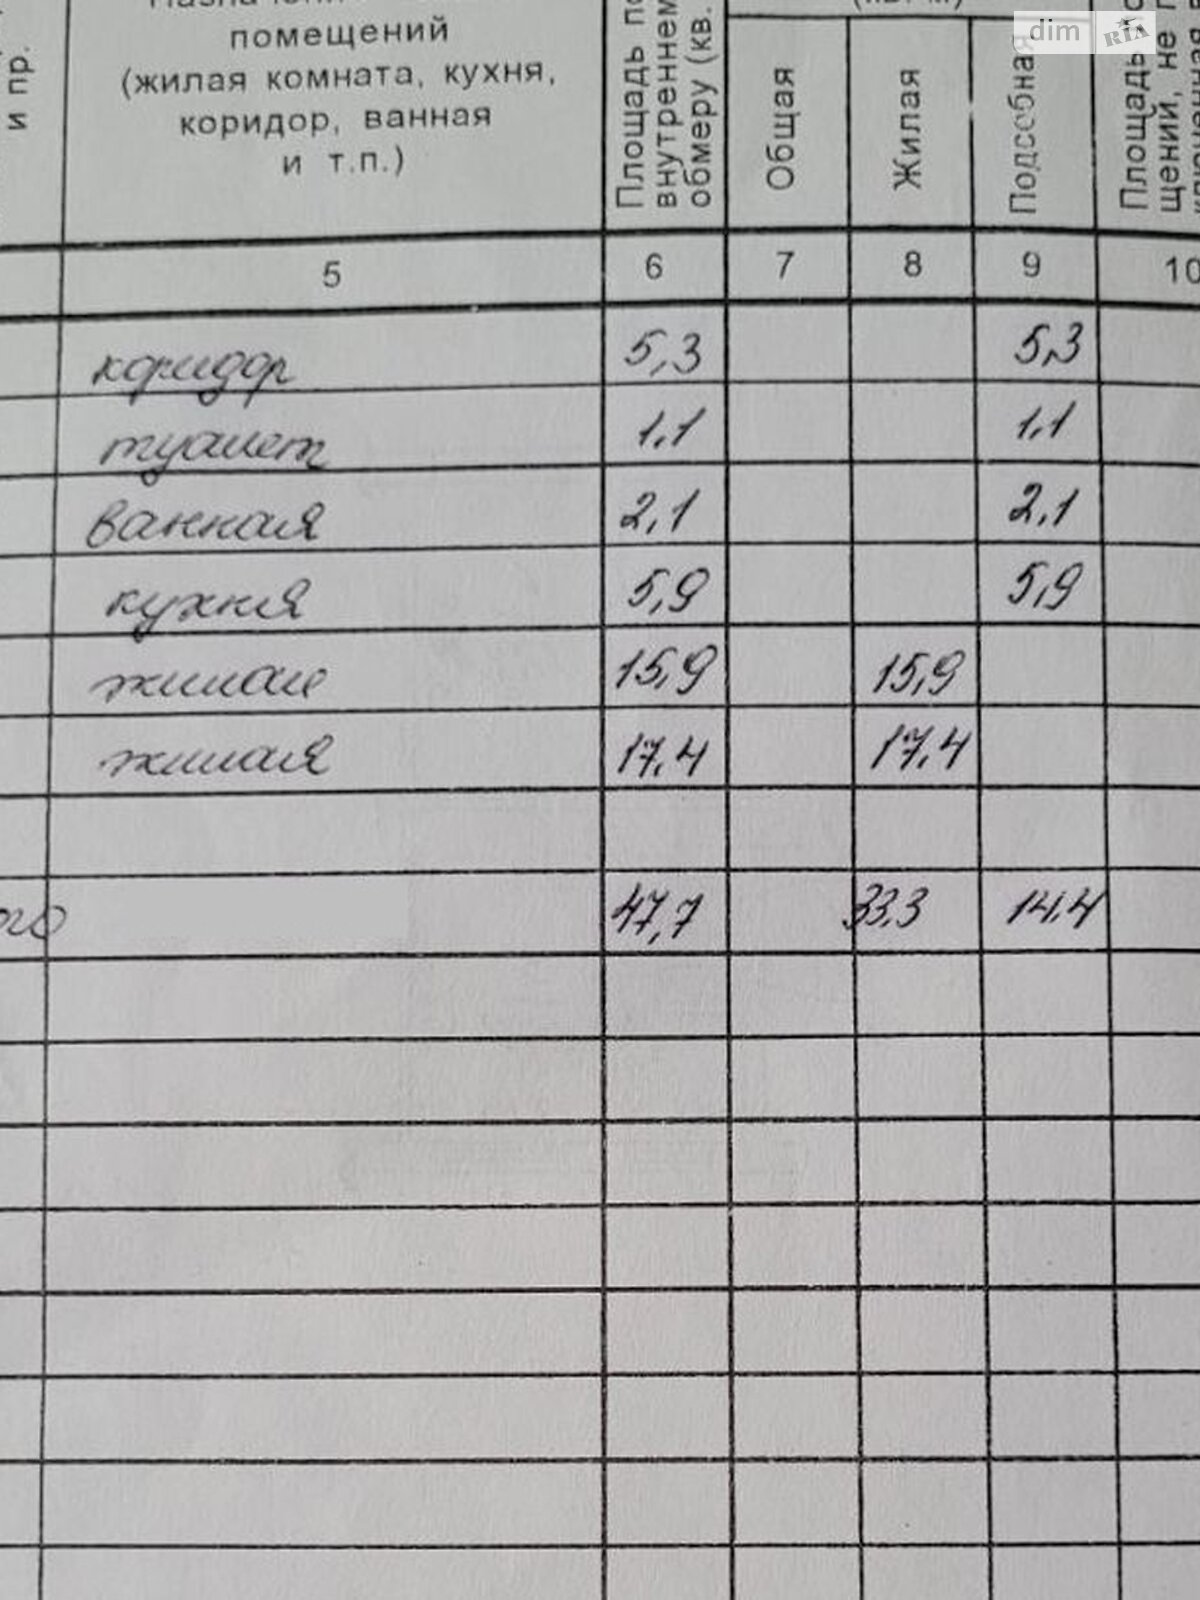 и пр.
помещений
(жилая комната, кухня,
коридор, ванная
и т.п.)
Площадь по
внутреннем
обмеру (кв.
Общая
Жилая
Подсобная
Площадь
щений, не
dim RIA
5 6 7 8 9 10
коридор 5,3 5,3
туалет 1,1 1,1
ванная 2,1 2,1
кухня 5,9 5,9
жилая 15,9 15,9
жилая 17,4 17,4
ого 47,7 33,3 14,4